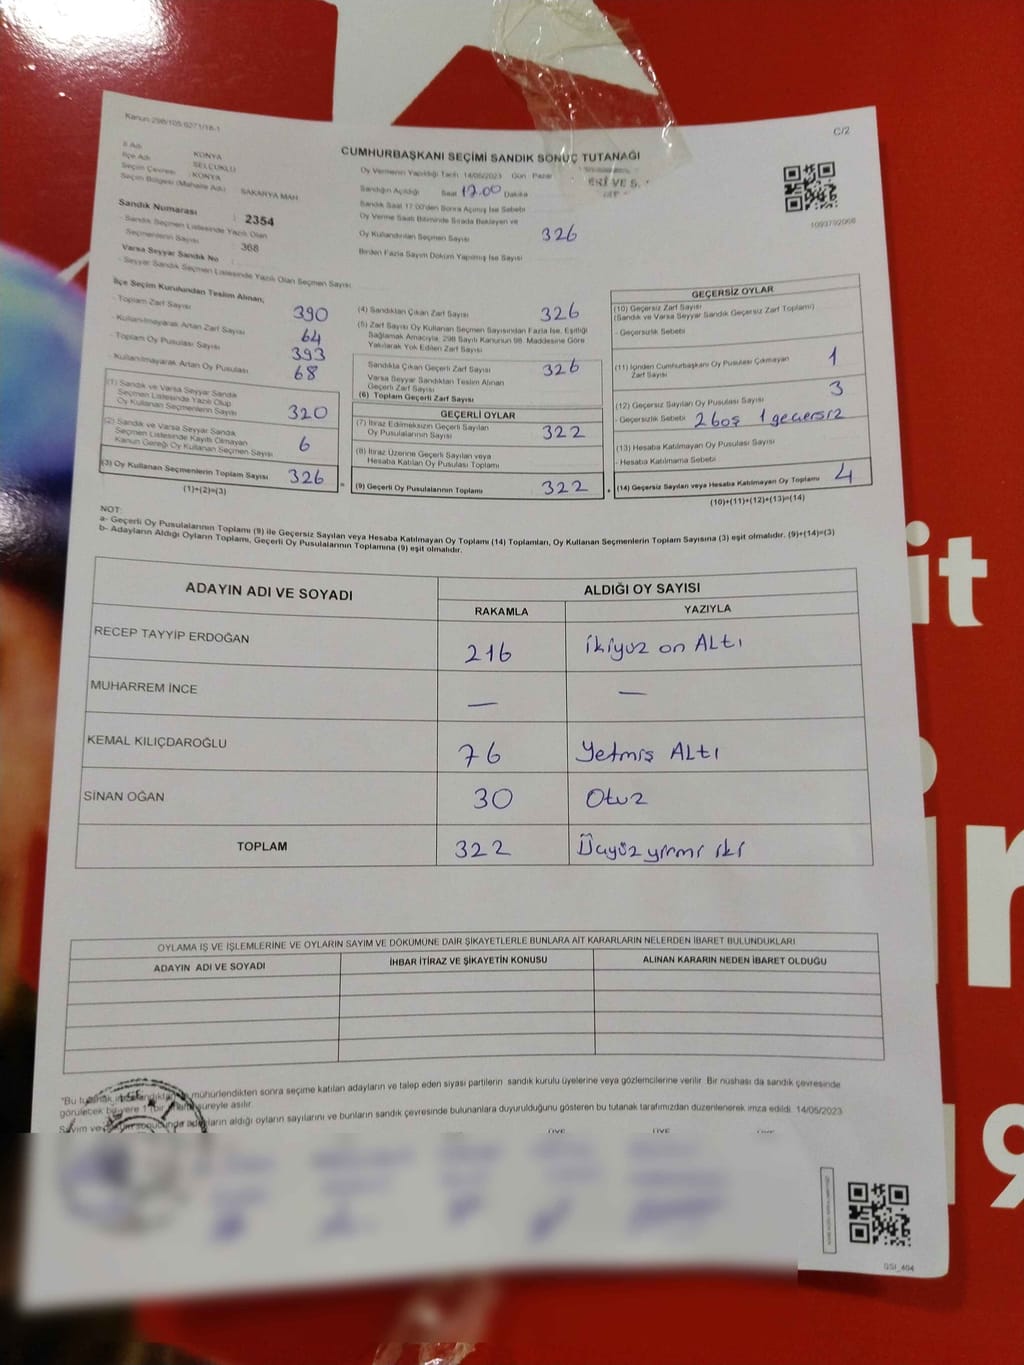 Kanun:298/105.6271/18-1
C/2
CUMHURBAŞKANI SEÇİMİ SANDIK SONUÇ TUTANAĞI
İl Adı KONYA
İlçe Adı SELÇUKLU
Seçim Çevresi : KONYA
Seçim Bölgesi (Mahalle Adı) SAKARYA MAH.
Sandık Numarası : 2354
Sandık Seçmen Listesinde Yazılı Olan
Seçmenlerin Sayısı : 368
Varsa Seyyar Sandık No
- Seyyar Sandık Seçmen Listesinde Yazılı Olan Seçmen Sayısı
Oy Vermenin Yapıldığı Tarih 14/05/2023 Gün : Pazar
Sandığın Açıldığı Saat 17.00 Dakika
Sandık Saat 17:00'den Sonra Açılmış İse Sebebi
Oy Verme Saati Bitiminde Sırada Bekleyen ve
Oy Kullandırılan Seçmen Sayısı 326
Birden Fazla Sayım Döküm Yapılmış İse Sayısı
1093792068
İlçe Seçim Kurulundan Teslim Alınan;
- Toplam Zarf Sayısı 390
- Kullanılmayarak Artan Zarf Sayısı 64
- Toplam Oy Pusulası Sayısı 393
- Kullanılmayarak Artan Oy Pusulası 68
(1) Sandık ve Varsa Seyyar Sandık
Seçmen Listesinde Yazılı Olup
Oy Kullanan Seçmenlerin Sayısı 320
(2) Sandık ve Varsa Seyyar Sandık
Seçmen Listesinde Kayıtlı Olmayan
Kanun Gereği Oy Kullanan Seçmen Sayısı 6
(3) Oy Kullanan Seçmenlerin Toplam Sayısı 326
(1)+(2)=(3)
(4) Sandıktan Çıkan Zarf Sayısı 326
(5) Zarf Sayısı Oy Kullanan Seçmen Sayısından Fazla İse, Eşitliği
Sağlamak Amacıyla; 298 Sayılı Kanunun 98. Maddesine Göre
Yakılarak Yok Edilen Zarf Sayısı
Sandıkta Çıkan Geçerli Zarf Sayısı 326
Varsa Seyyar Sandıktan Teslim Alınan
Geçerli Zarf Sayısı
(6) Toplam Geçerli Zarf Sayısı
GEÇERLİ OYLAR
(7) İtiraz Edilmeksizin Geçerli Sayılan
Oy Pusulalarının Sayısı 322
(8) İtiraz Üzerine Geçerli Sayılan veya
Hesaba Katılan Oy Pusulası Toplamı
(9) Geçerli Oy Pusulalarının Toplamı 322
GEÇERSİZ OYLAR
(10) Geçersiz Zarf Sayısı
(Sandık ve Varsa Seyyar Sandık Geçersiz Zarf Toplamı)
- Geçersizlik Sebebi
(11) İçinden Cumhurbaşkanı Oy Pusulası Çıkmayan
Zarf Sayısı 1
(12) Geçersiz Sayılan Oy Pusulası Sayısı 3
- Geçersizlik Sebebi 2 boş 1 geçersiz
(13) Hesaba Katılmayan Oy Pusulası Sayısı
- Hesaba Katılmama Sebebi
(14) Geçersiz Sayılan veya Hesaba Katılmayan Oy Toplamı 4
(10)+(11)+(12)+(13)=(14)
NOT:
a- Geçerli Oy Pusulalarının Toplamı (9) ile Geçersiz Sayılan veya Hesaba Katılmayan Oy Toplamı (14) Toplamları, Oy Kullanan Seçmenlerin Toplam Sayısına (3) eşit olmalıdır. (9)+(14)=(3)
b- Adayların Aldığı Oyların Toplamı, Geçerli Oy Pusulalarının Toplamına (9) eşit olmalıdır.
ADAYIN ADI VE SOYADI ALDIĞI OY SAYISI
RAKAMLA YAZIYLA
RECEP TAYYİP ERDOĞAN 216 ikiyüz on ALtı
MUHARREM İNCE — —
KEMAL KILIÇDAROĞLU 76 Yetmiş ALtı
SİNAN OĞAN 30 Otuz
TOPLAM 322 Üçyüz yirmi iki
OYLAMA İŞ VE İŞLEMLERİNE VE OYLARIN SAYIM VE DÖKÜMÜNE DAİR ŞİKAYETLERLE BUNLARA AİT KARARLARIN NELERDEN İBARET BULUNDUKLARI
ADAYIN ADI VE SOYADI İHBAR İTİRAZ VE ŞİKAYETİN KONUSU ALINAN KARARIN NEDEN İBARET OLDUĞU
"Bu mühürlendikten sonra seçime katılan adayların ve talep eden siyasi partilerin sandık kurulu üyelerine veya gözlemcilerine verilir. Bir nüshası da sandık çevresinde
görülecek bir yere süreyle asılır.
Sayım ve adayların aldığı oyların sayılarını ve bunların sandık çevresinde bulunanlara duyurulduğunu gösteren bu tutanak tarafımızdan düzenlenerek imza edildi. 14/05/2023
ÜYE ÜYE
GSI_404
it
19